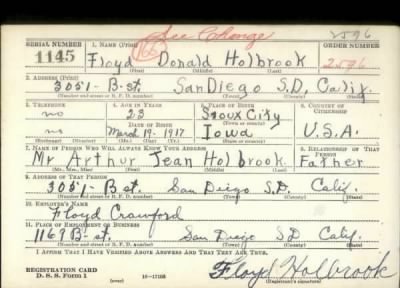 See Change 2596
SERIAL NUMBER 1. NAME (Print) ORDER NUMBER
1145 Floyd Donald Holbrook 2596
(First) (Middle) (Last)
2. ADDRESS (Print)
3051-B-st. San Diego S.D. Calif.
(Number and street or R. F. D. number) (Town) (County) (State)
3. TELEPHONE 4. AGE IN YEARS 5. PLACE OF BIRTH 6. COUNTRY OF CITIZENSHIP
no 23 Sioux City
DATE OF BIRTH (Town or county)
no March 19-1917 Iowa U.S.A.
(Mo.) (Day) (Yr.) (State or country)
7. NAME OF PERSON WHO WILL ALWAYS KNOW YOUR ADDRESS 8. RELATIONSHIP OF THAT PERSON
Mr Arthur Jean Holbrook Father
(Mr., Mrs., Miss) (First) (Middle) (Last)
9. ADDRESS OF THAT PERSON
3051-B st. San Diego S.D. Calif.
(Number and street or R. F. D. number) (Town) (County) (State)
10. EMPLOYER'S NAME
Floyd Crawford
11. PLACE OF EMPLOYMENT OR BUSINESS
1167 B-st. San Diego S D Calif.
(Number and street or R. F. D. number) (Town) (County) (State)
I AFFIRM THAT I HAVE VERIFIED ABOVE ANSWERS AND THAT THEY ARE TRUE.
REGISTRATION CARD
D. S. S. Form 1 (over) 16-17105 Floyd Holbrook
(Registrant's signature)